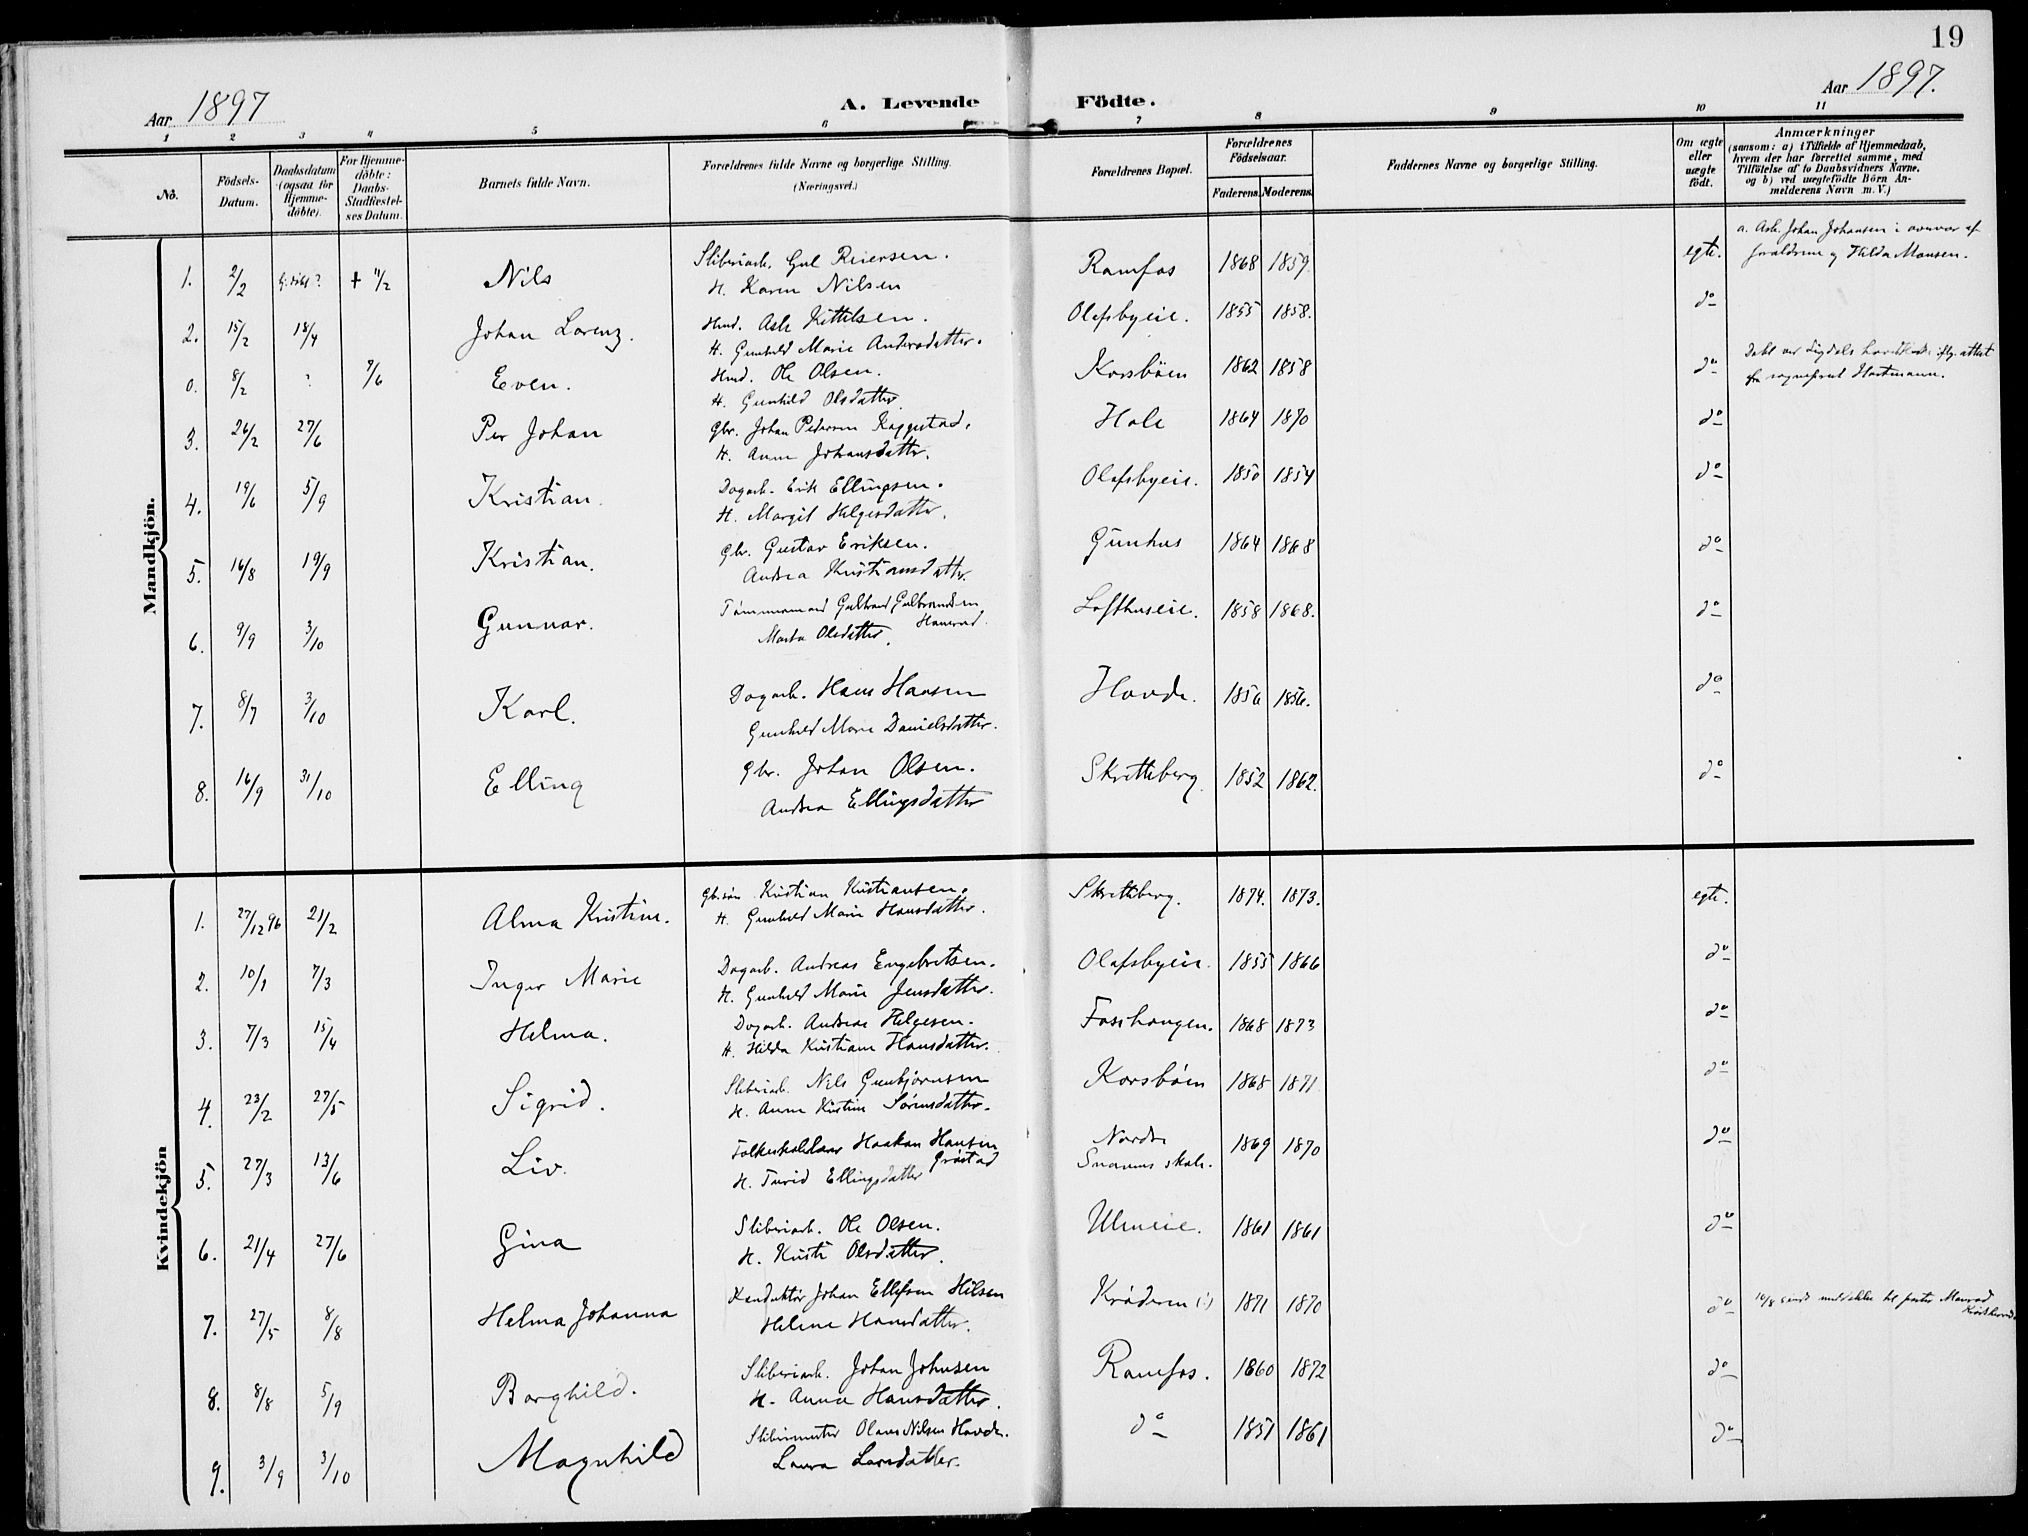 19
Aar 1897
A. Levende Födte.
Aar 1897.
1 2 3 4 5 6 7 8 9 10 11
No.
Födsels-Datum.
Daabsdatum (ogsaa for Hjemme-döbte).
For Hjemme-döbte: Daabs-Stadfæstel-ses Datum.
Barnets fulde Navn.
Forældrenes fulde Navne og borgerlige Stilling. (Næringsvei.)
Forældrenes Bopæl.
Forældrenes Födselsaar.
Faderens. Moderens.
Faddernes Navne og borgerlige Stilling.
Om ægte eller uægte födt.
Anmærkninger
(saasom: a) i Tilfælde af Hjemmedaab, hvem der har forrettet samme, med Tilföielse af to Daabsvidners Navne, og b) ved uægtefödte Börn An-melderens Navn m. V.)
Mandkjön.
1. 2/2 + 11/2 Nils Sliberiarb. Gul Reiersen. Ramfos 1868 1859. egte. a. Arb. Johan Johansen i overvær af
H. Karen Nilsen forældrene og Hilda Monsen.
2. 15/2 18/4 Johan Lorenz. Hmd. Asle Kittilsen. Olafsbyeie. 1855 1858. do
H. Gunhild Marie Andersdatter.
0. 8/2 ? 7/6 Even. Hmd. Ole Olsen. Korsbøen 1862 1858 do
H. Gunhild Olsdatter. fra sogneprest Hartmann.
3. 26/2 27/6 Per Johan Gbr. Johan Pedersen Kaggestad. Hole 1864 1870 do
H. Anne Johansdatter.
4. 19/6 5/9 Kristian. Dagarb. Erik Ellingsen. Olafsbyeie. 1850 1854 do
H. Margit Helgesdatter.
5. 16/8 19/9 Kristian. Gbr. Gustav Eriksen. Gunhus 1864 1868 do
Andrea Kristiansdatter.
6. 9/9 3/10 Gunnar. Tømmermand Gulbrand Gulbrandsen Lofthuseie. 1858 1868. do
Marta Olsdatter.
7. 8/7 3/10 Karl. Dagarb. Hans Hansen Hovde. 1856 1856. do
Gunhild Marie Danielsdatter.
8. 16/9 31/10 Elling Gbr. Johan Olsen. Skretteberg 1852 1862. do
Andrea Ellingsdatter
Kvindekjön
1. 27/12 96 21/2 Alma Kristine. Gbr.søn Kristian Kristiansen. Skretteberg. 1874. 1873. egte.
H. Gunhild Marie Hansdatter.
2. 10/1 7/3 Inger Marie Dagarb. Andreas Engebretsen. Olafsbyeie. 1855 1866 do
H. Gunhild Marie Jensdatter.
3. 7/3 15/4 Helma. Dagarb. Andreas Helgesen. Foshaugen. 1868 1873 do
H. Hilda Kristiane Hansdatter.
4. 23/2 27/5 Sigrid. Sliberiarb. Nils Gunbjørnsen Korsbøen 1868 1871 do
H. Anne Kristine Sørensdatter.
5. 27/3 13/6 Liv. Folkeskolelærer Haakon Hansen Grøstad Nordre Snarums skole. 1869 1870 do
H. Turid Ellingsdatter
6. 21/4 27/6 Gina Sliberiarb. Ole Olsen. Ulneie. 1861 1861 do
H. Kristi Olsdatter.
7. 27/5 8/8 Helma Johanna Konduktør Johan Ellefsen Hilsen Krøderen (?) 1871 1870 do 10/8 sendt meddelelse til pastor
Helene Hansdatter.
8. 8/8 5/9 Borghild. Sliberiarb. Johan Johnsen Ramfos. 1860 1872 do
H. Anna Hansdatter.
9. 3/9 3/10 Magnhild Slibermester Olaus Nilsen Hovde. do 1851 1861 do
Laura Larsdatter.